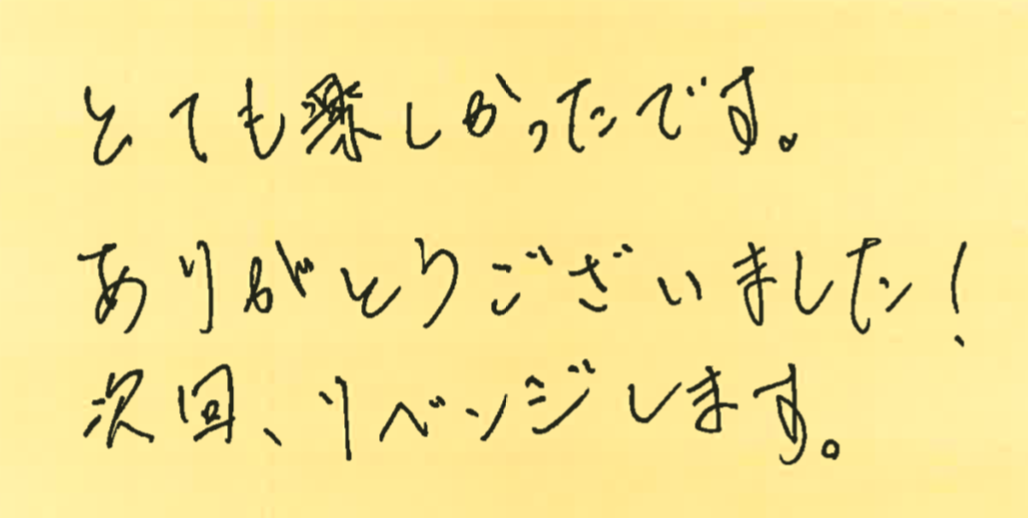 とても楽しかったです。
ありがとうございました!
次回、リベンジします。